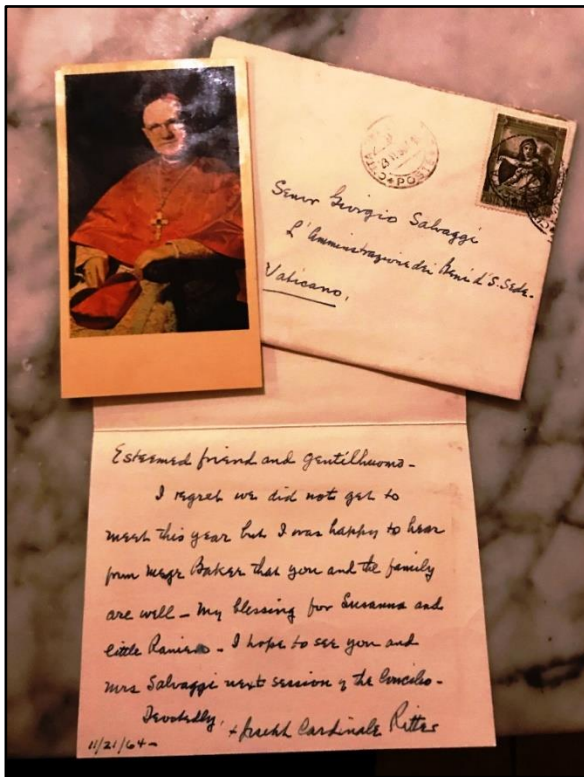 CITTA
POSTE
Senor Giorgio Salvaggi
L'Amministrazione dei Beni d'S. Sede.
Vaticano.
Esteemed friend and gentilhuomo -
I regret we did not get to
meet this year but I was happy to hear
from Msgr Baker that you and the family
are well - My blessing for Susanna and
little Raniero - I hope to see you and
Mrs Salvaggi next session of the Concilio -
Devotedly,
+ Joseph Cardinale Ritter
11/21/64 -